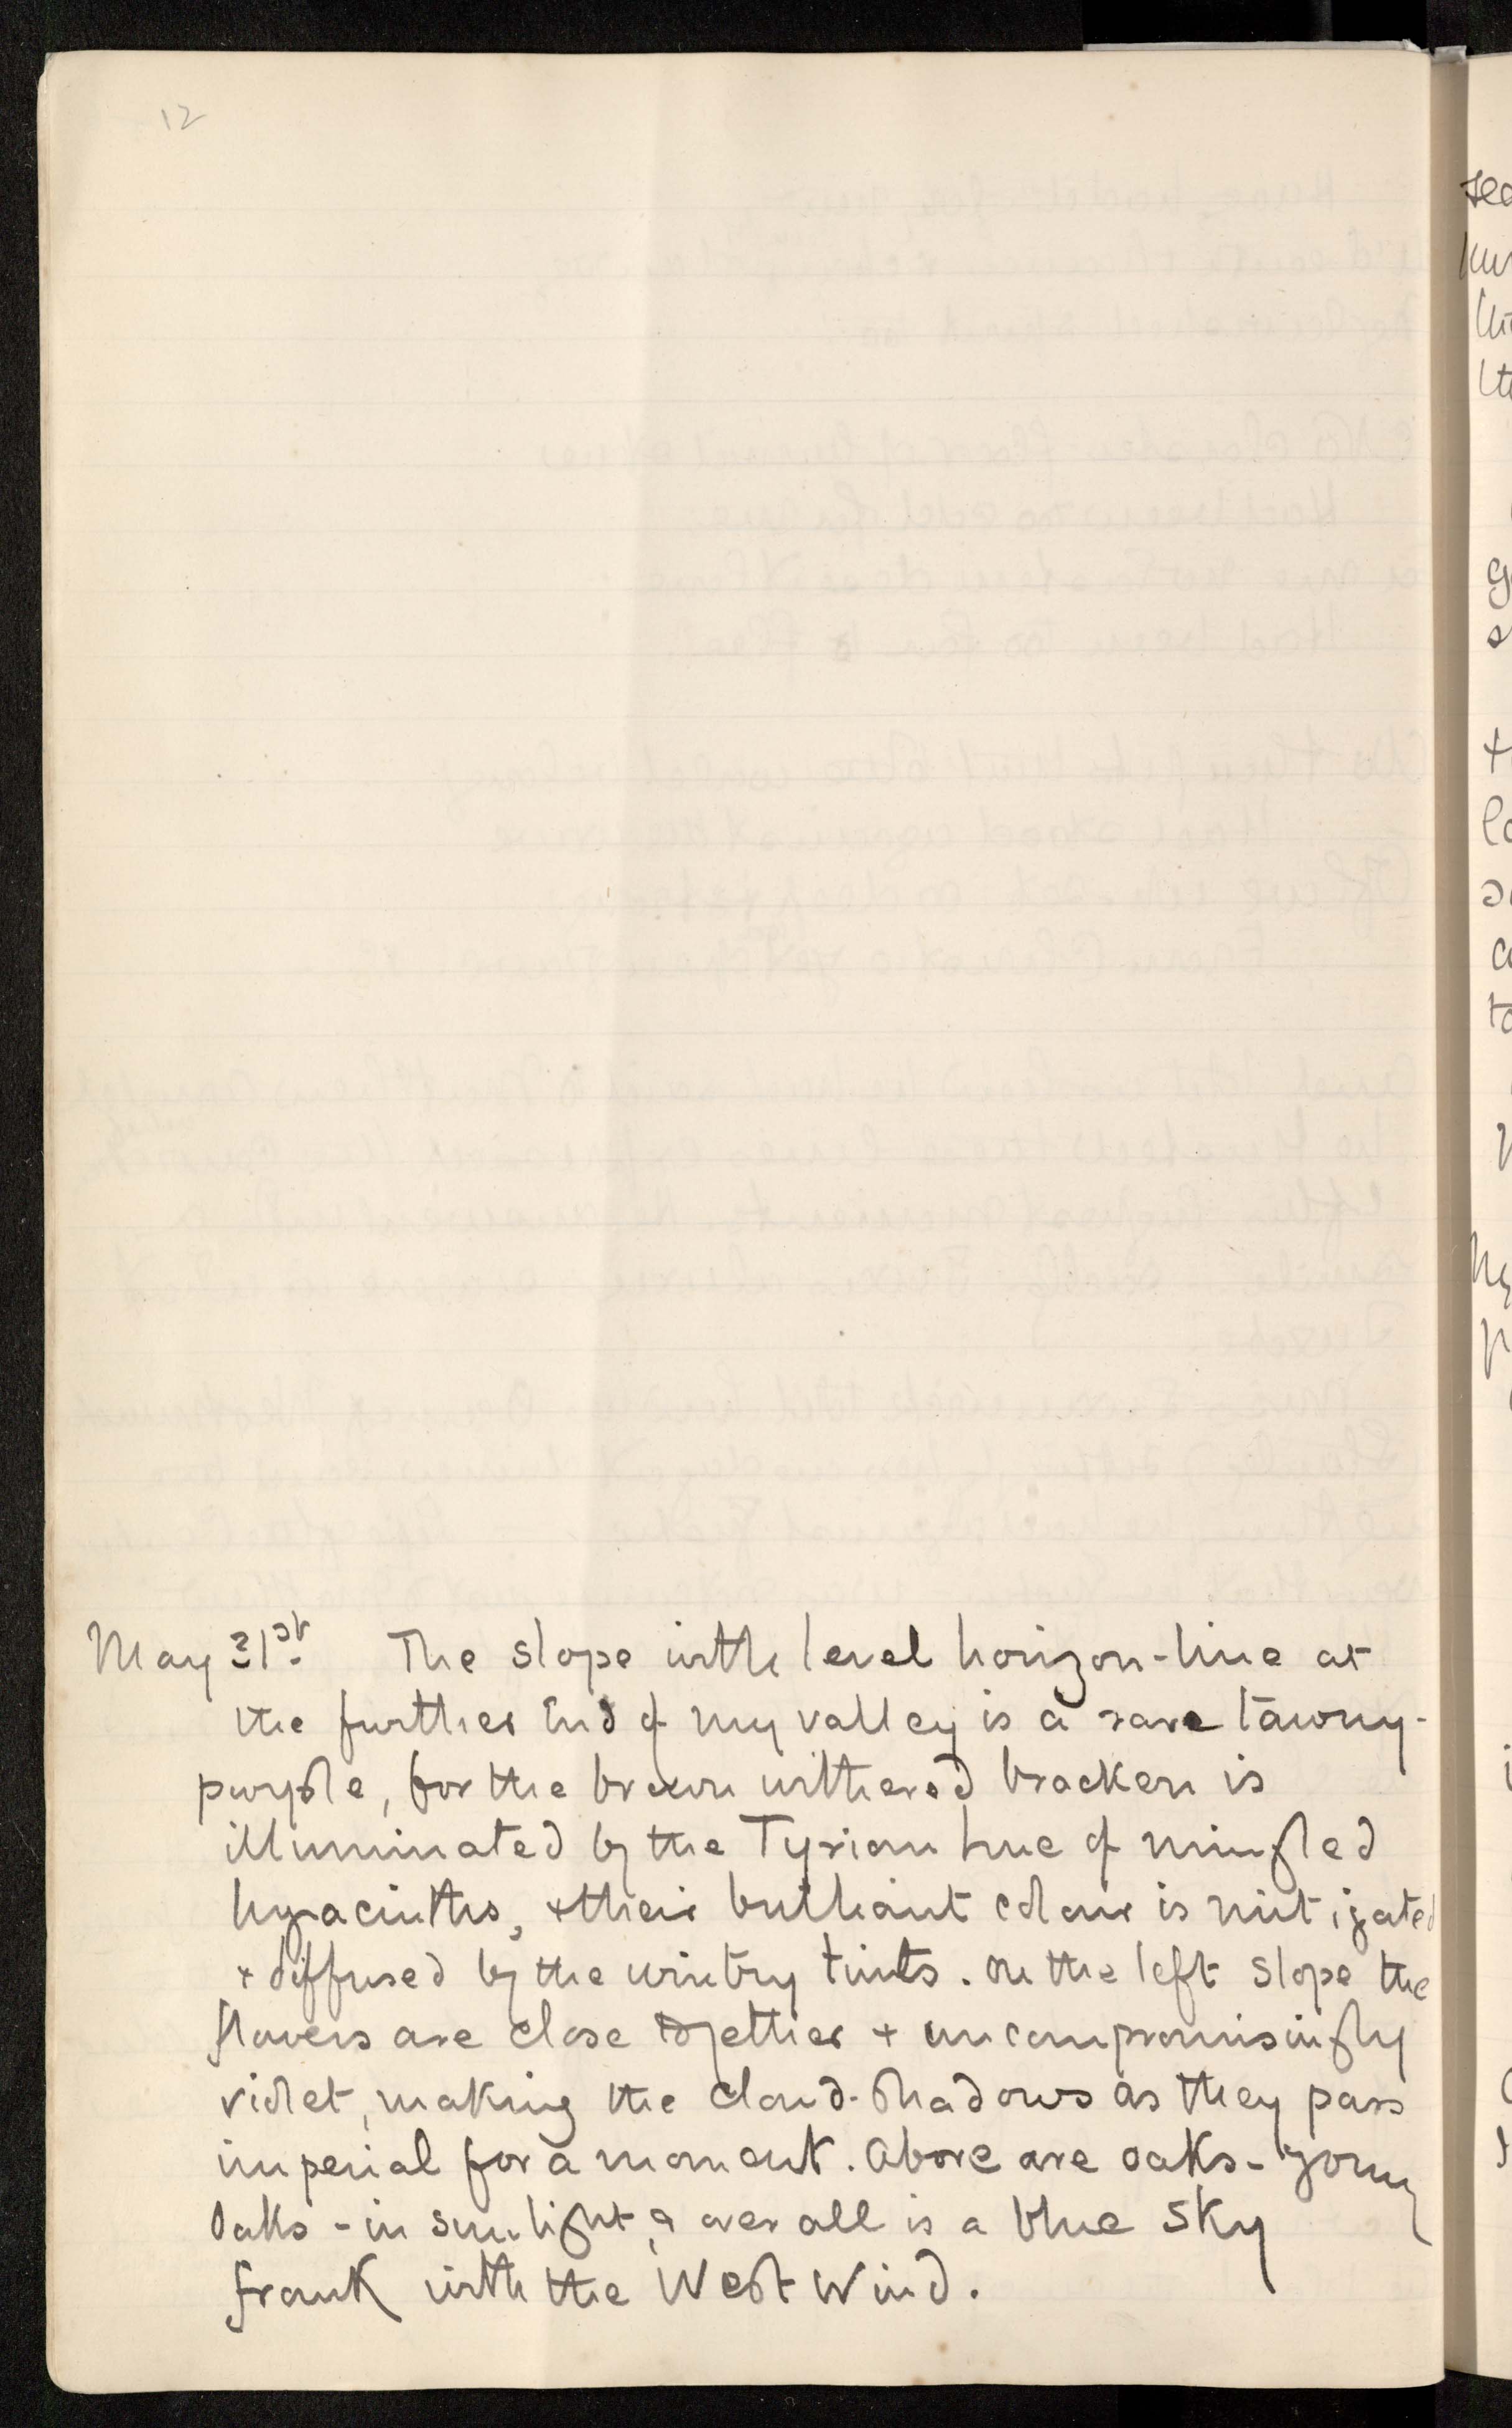 12
May 31st. The slope with level horizon-line at
the further end of my valley is a rare tawny-
purple, for the brown withered bracken is
illuminated by the Tyrian hue of mingled
hyacinths, + their brilliant colour is mitigated
+ diffused by the wintry tints. On the left slope the
flowers are close together + uncompromisingly
violet, making the cloud-shadows as they pass
imperial for a moment. Above are oaks - young
oaks - in sunlight, & over all is a blue sky
frank with the West Wind.